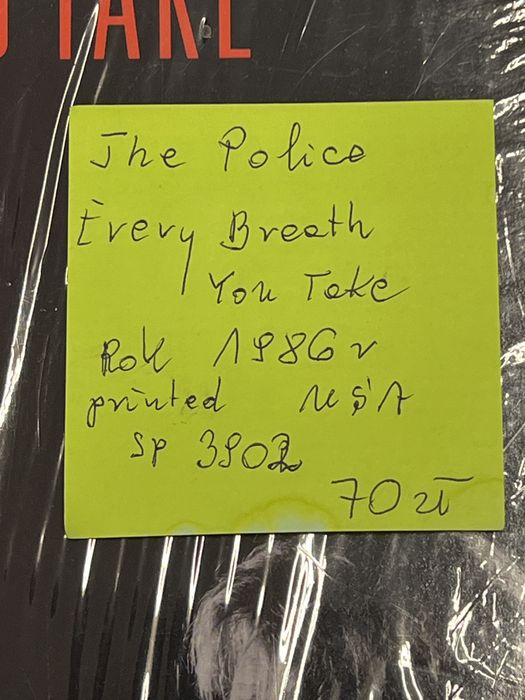 TAKE
The Police
Every Breath
You Take
Rok 1986 r
printed USA
SP 3902
70 zł